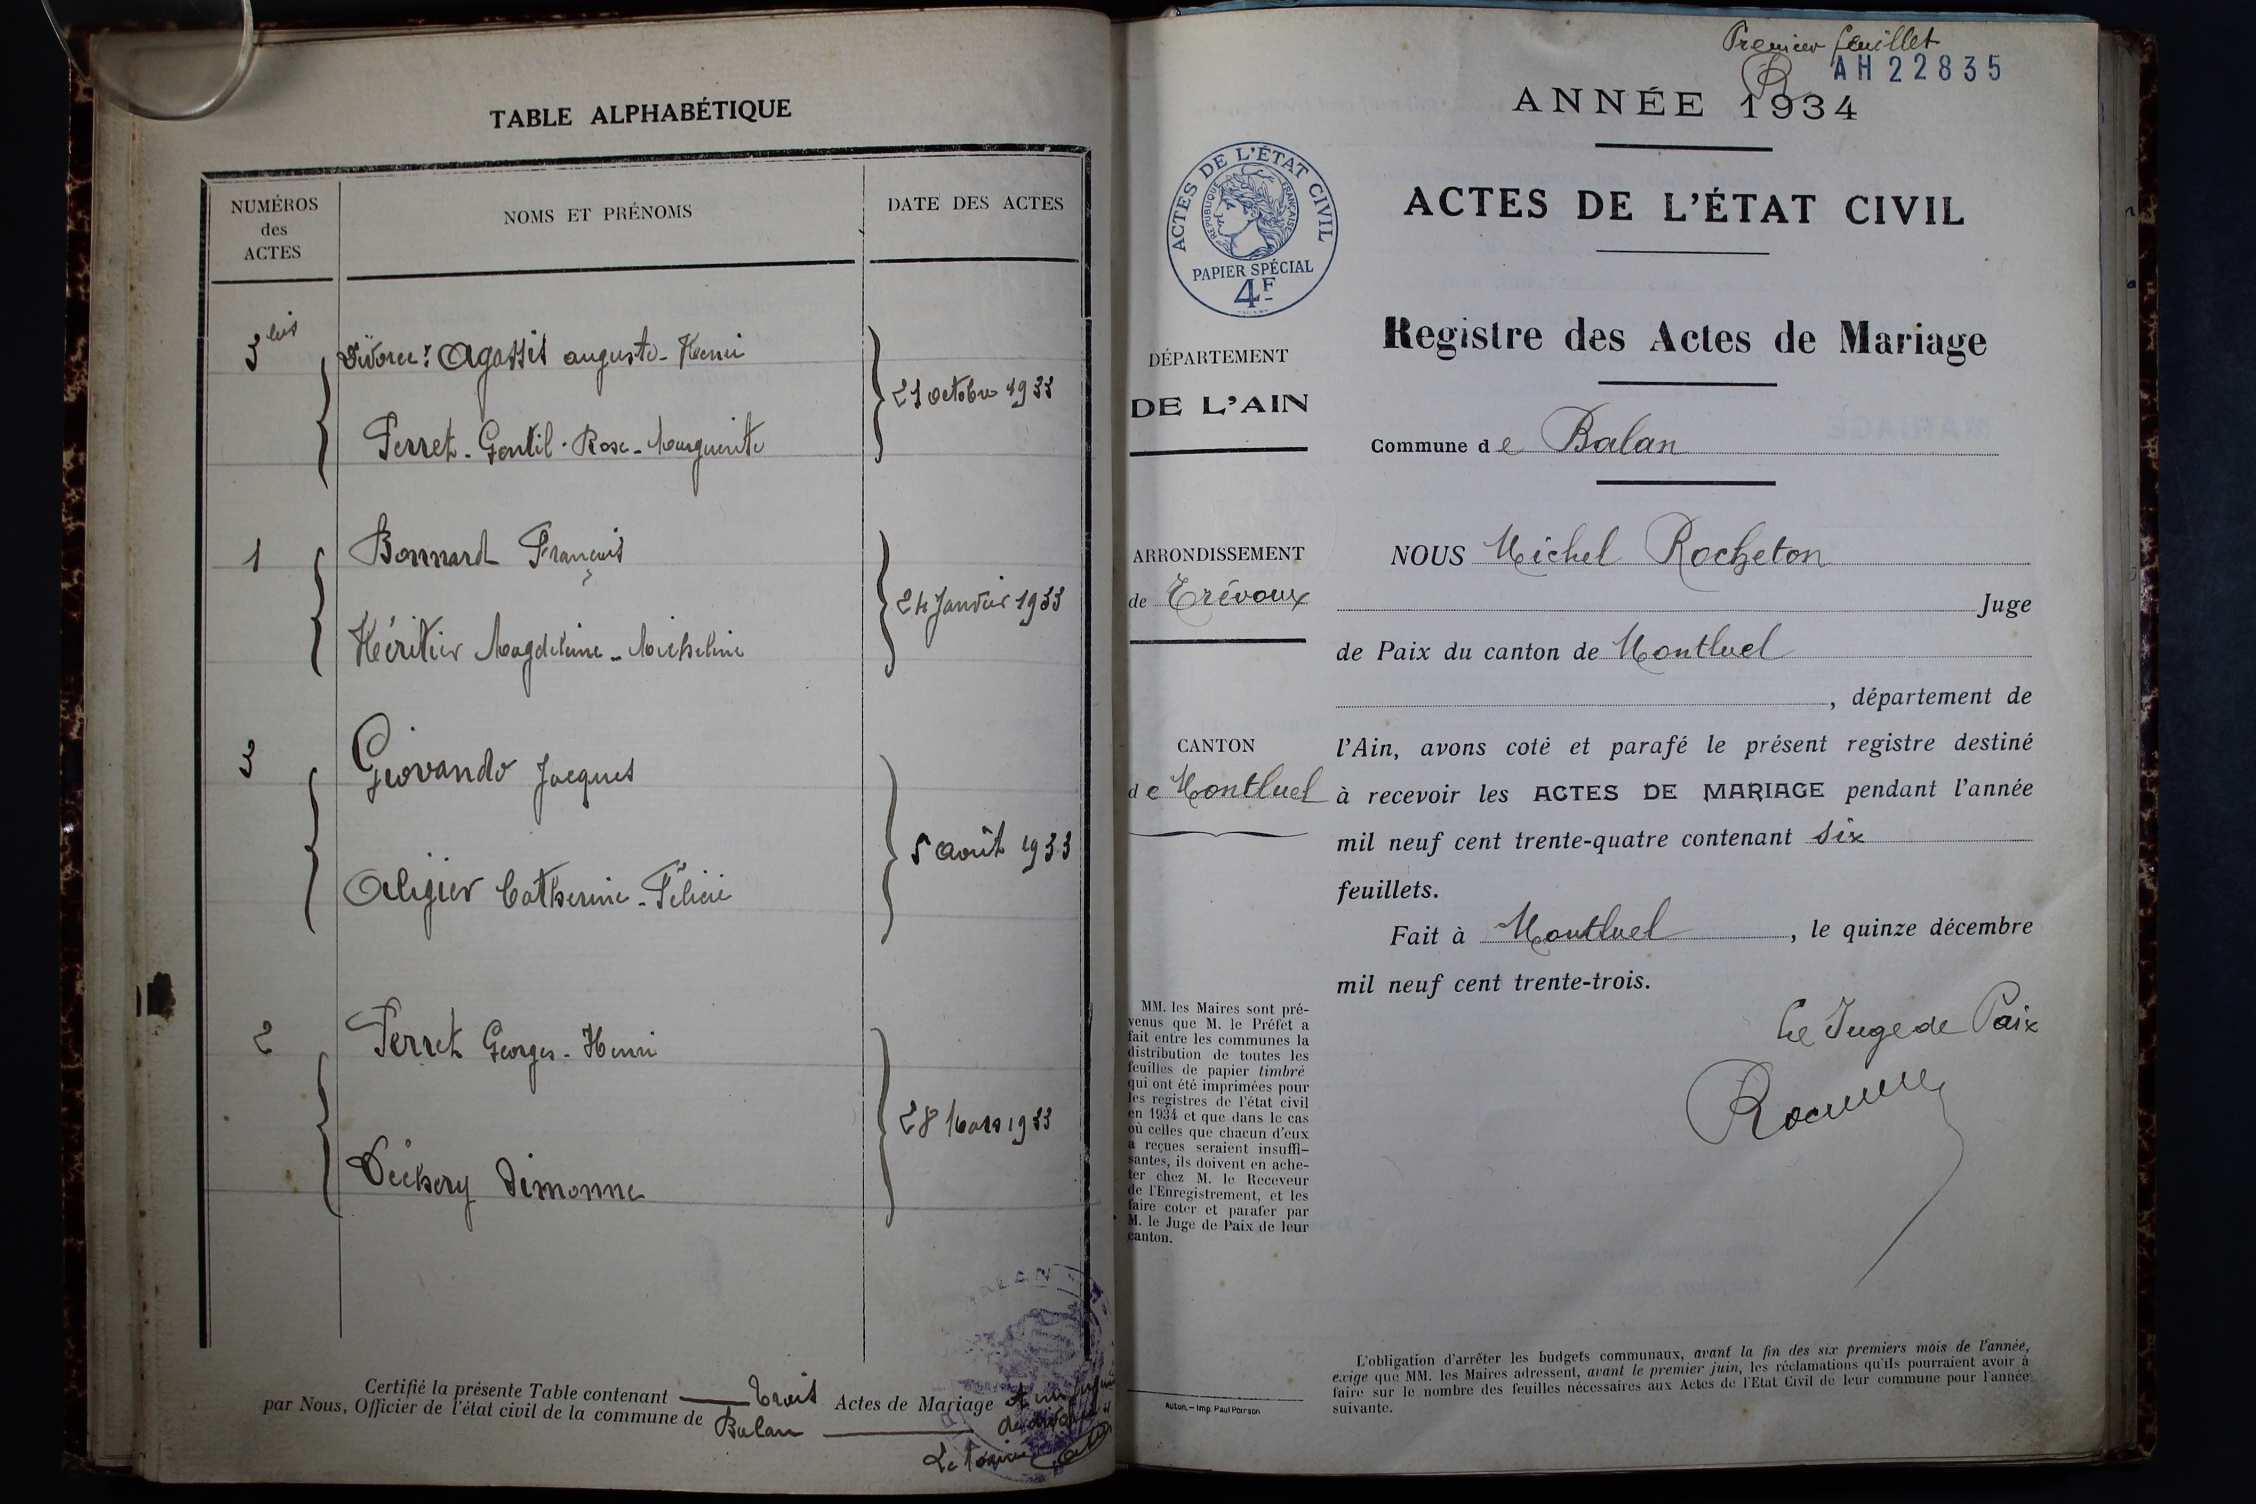 TABLE ALPHABÉTIQUE
NUMÉROS
des
ACTES
NOMS ET PRÉNOMS
DATE DES ACTES
3 bis
Divorce : Agassis auguste - Henri
21 octobre 1933
Perret - Gentil - Rose - Marguerite
1
Bonnard François
24 Janvier 1933
Héritier Magdeleine - Micheline
3
Giovando Jacques
5 août 1933
Aligier Catherine - Félicie
2
Perret Georges - Henri
28 Mars 1933
Péchery Simonne
Certifié la présente Table contenant Trois Actes de Mariage
par Nous, Officier de l'état civil de la commune de Balan
Le Maire
Premier feuillet
AH 22835
ANNÉE 1934
ACTES DE L'ÉTAT CIVIL
RÉPUBLIQUE FRANÇAISE
PAPIER SPÉCIAL
4F
ACTES DE L'ÉTAT CIVIL
Registre des Actes de Mariage
DÉPARTEMENT
DE L'AIN
Commune de Balan
ARRONDISSEMENT
de Trévoux
NOUS Michel Rocheton
Juge
de Paix du canton de Montluel
, département de
CANTON
de Montluel
l'Ain, avons coté et parafé le présent registre destiné
à recevoir les ACTES DE MARIAGE pendant l'année
mil neuf cent trente-quatre contenant six
feuillets.
Fait à Montluel, le quinze décembre
mil neuf cent trente-trois.
Le Juge de Paix
MM. les Maires sont pré-
venus que M. le Préfet a
fait entre les communes la
distribution de toutes les
feuilles de papier timbré
qui ont été imprimées pour
les registres de l'état civil
en 1934 et que dans le cas
où celles que chacun d'eux
a reçues seraient insuffi-
santes, ils doivent en ache-
ter chez M. le Receveur
de l'Enregistrement, et les
faire coter et parafer par
M. le Juge de Paix de leur
canton.
Autun. - Imp. Paul Poirson
L'obligation d'arrêter les budgets communaux, avant la fin des six premiers mois de l'année,
exige que MM. les Maires adressent, avant le premier juin, les réclamations qu'ils pourraient avoir à
faire sur le nombre des feuilles nécessaires aux Actes de l'Etat Civil de leur commune pour l'année
suivante.